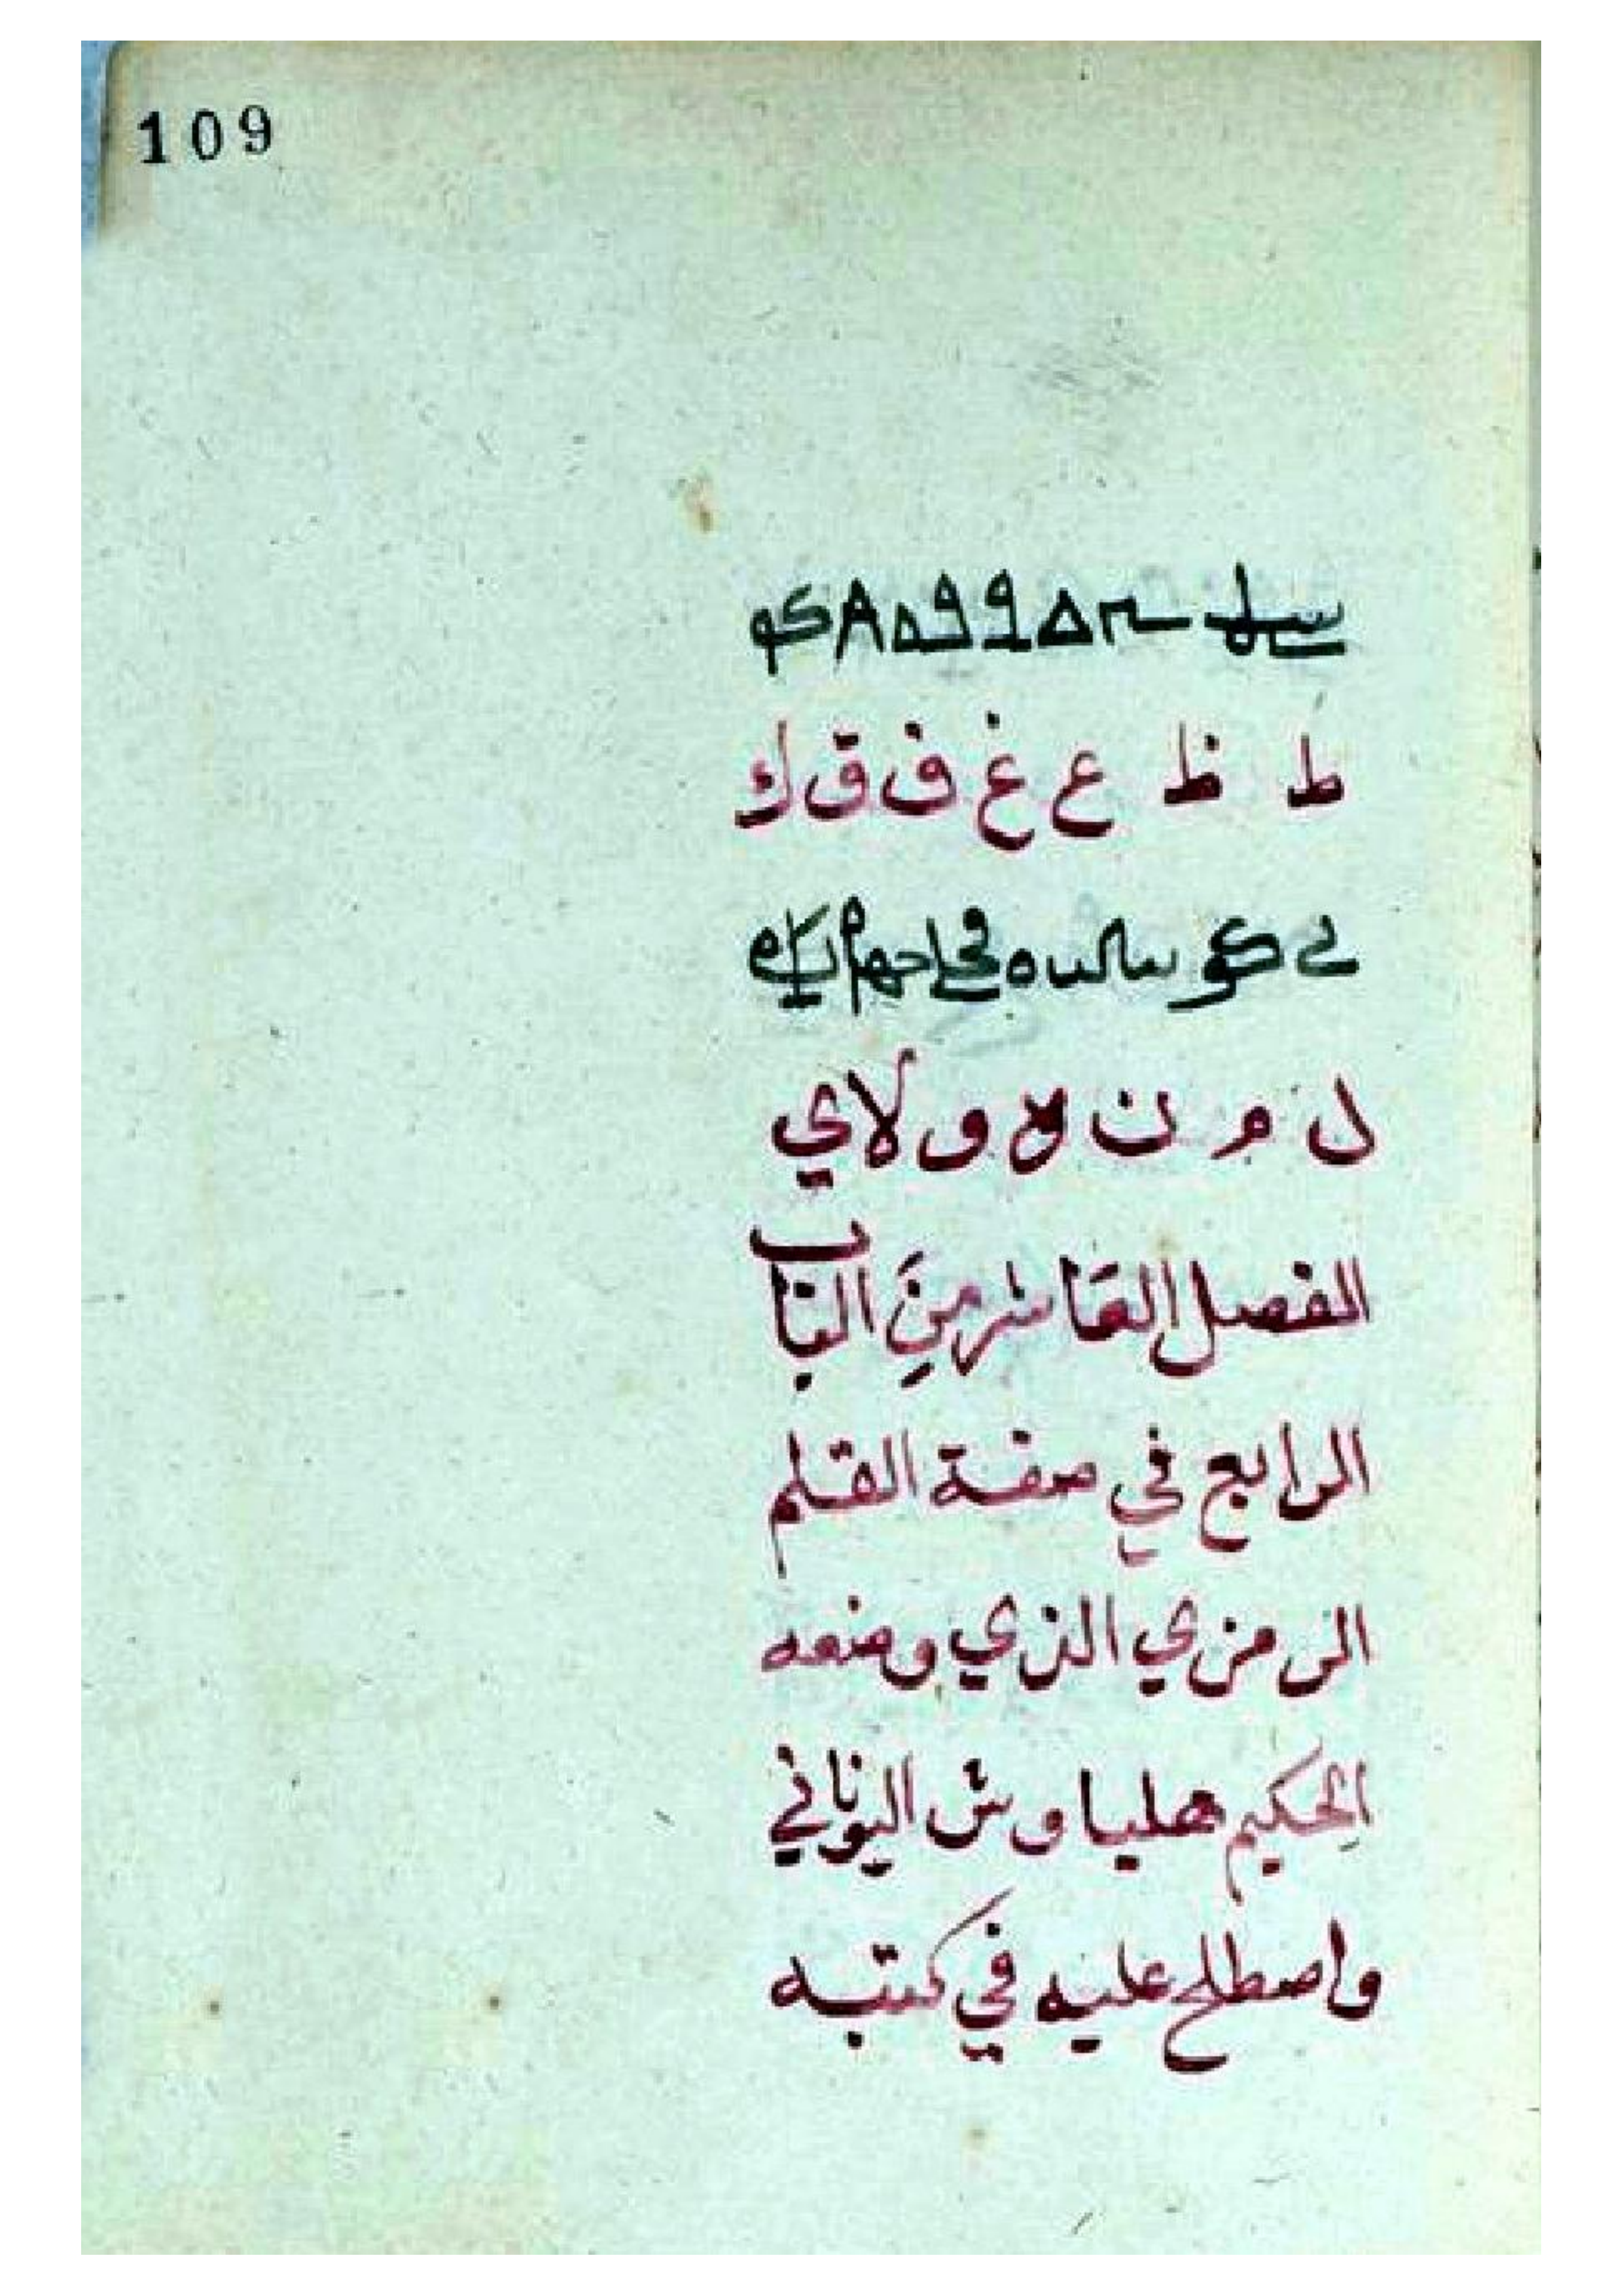 109
ط ظ ع غ ف ق ك
ل م ن ه و لا ي
الفصل العَاشر مِنَ البَاب
الرابع في صفة القلم
الرمزي الذي وضعه
الحكيم هلياوش اليوناني
واصطلح عليه في كتبه